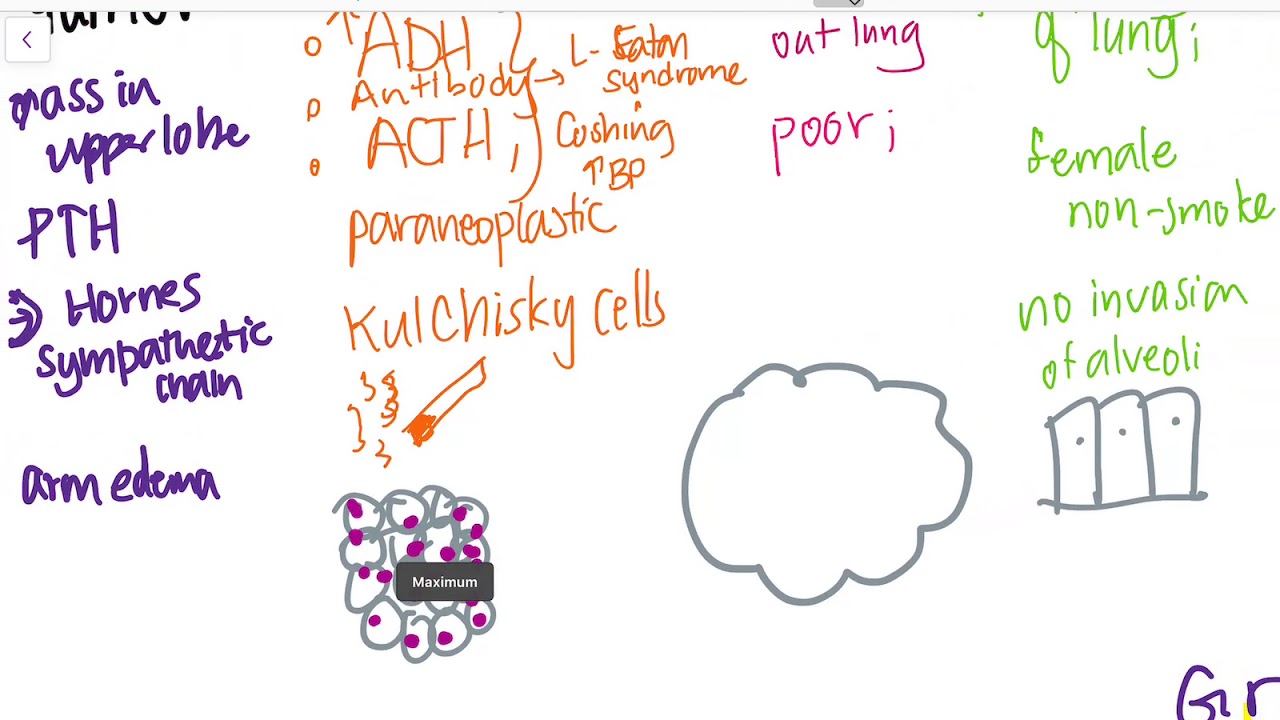 mass in
upper lobe
PTH
Hornes
sympathetic
chain
arm edema
↑ ADH
Antibody → L- Eaton
syndrome
ACTH; Cushing
↑ BP
paraneoplastic
Kulchisky cells
Maximum
out lung
poor;
of lung;
female
non-smoke
no invasion
of alveoli